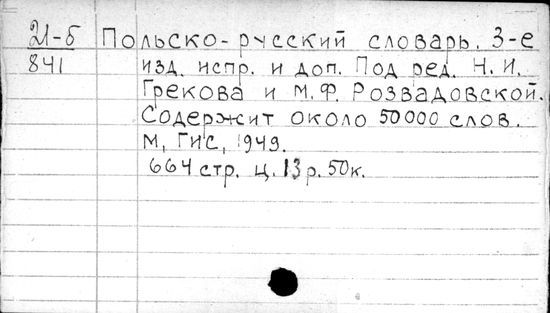 21-б Польско-русский словарь. 3-е
841 изд. испр. и доп. Под ред. Н. И.
Грекова и М.Ф. Розвадовской.
Содержит около 50000 слов.
М, ГИС, 1949.
664 стр. ц. 13 р. 50к.